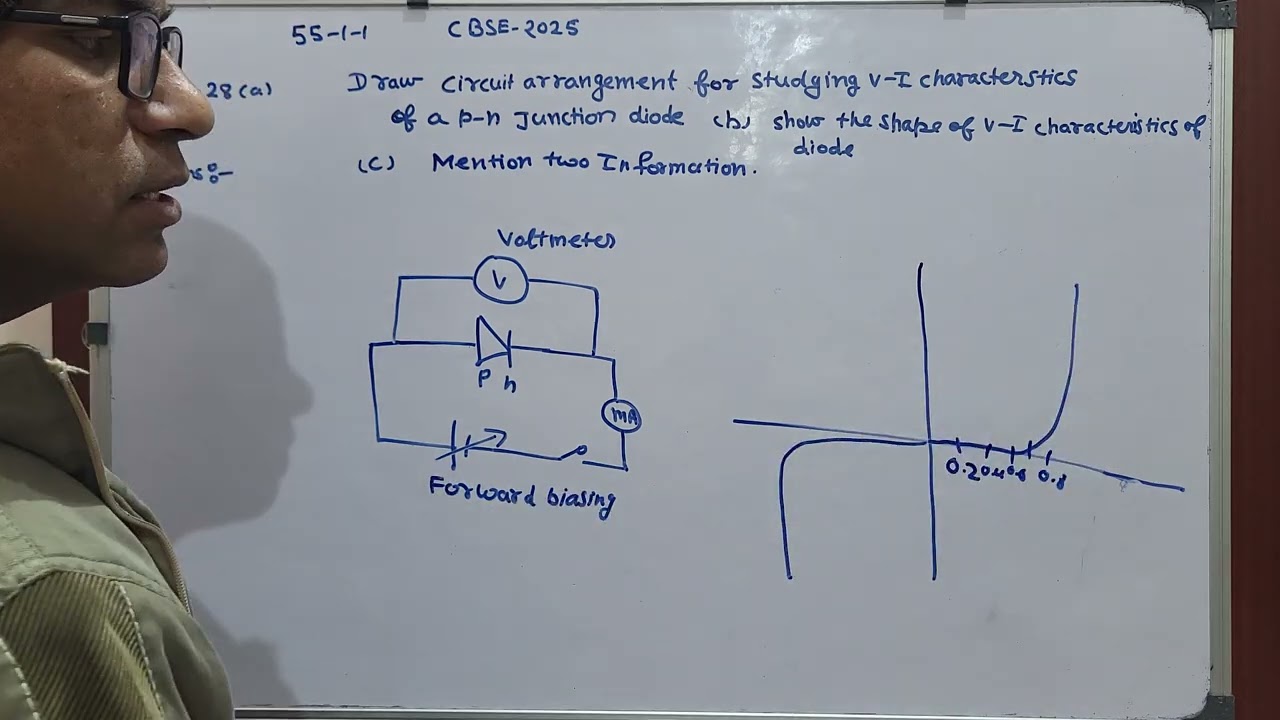 55-1-1 CBSE-2025
28(a) Draw Circuit arrangement for studying V-I characterstics
of a p-n Junction diode (b) show the shape of V-I characteristics of
diode
(C) Mention two Information.
Voltmeter
V
P n
mA
Forward biasing
0.2 0.4 0.6 0.8